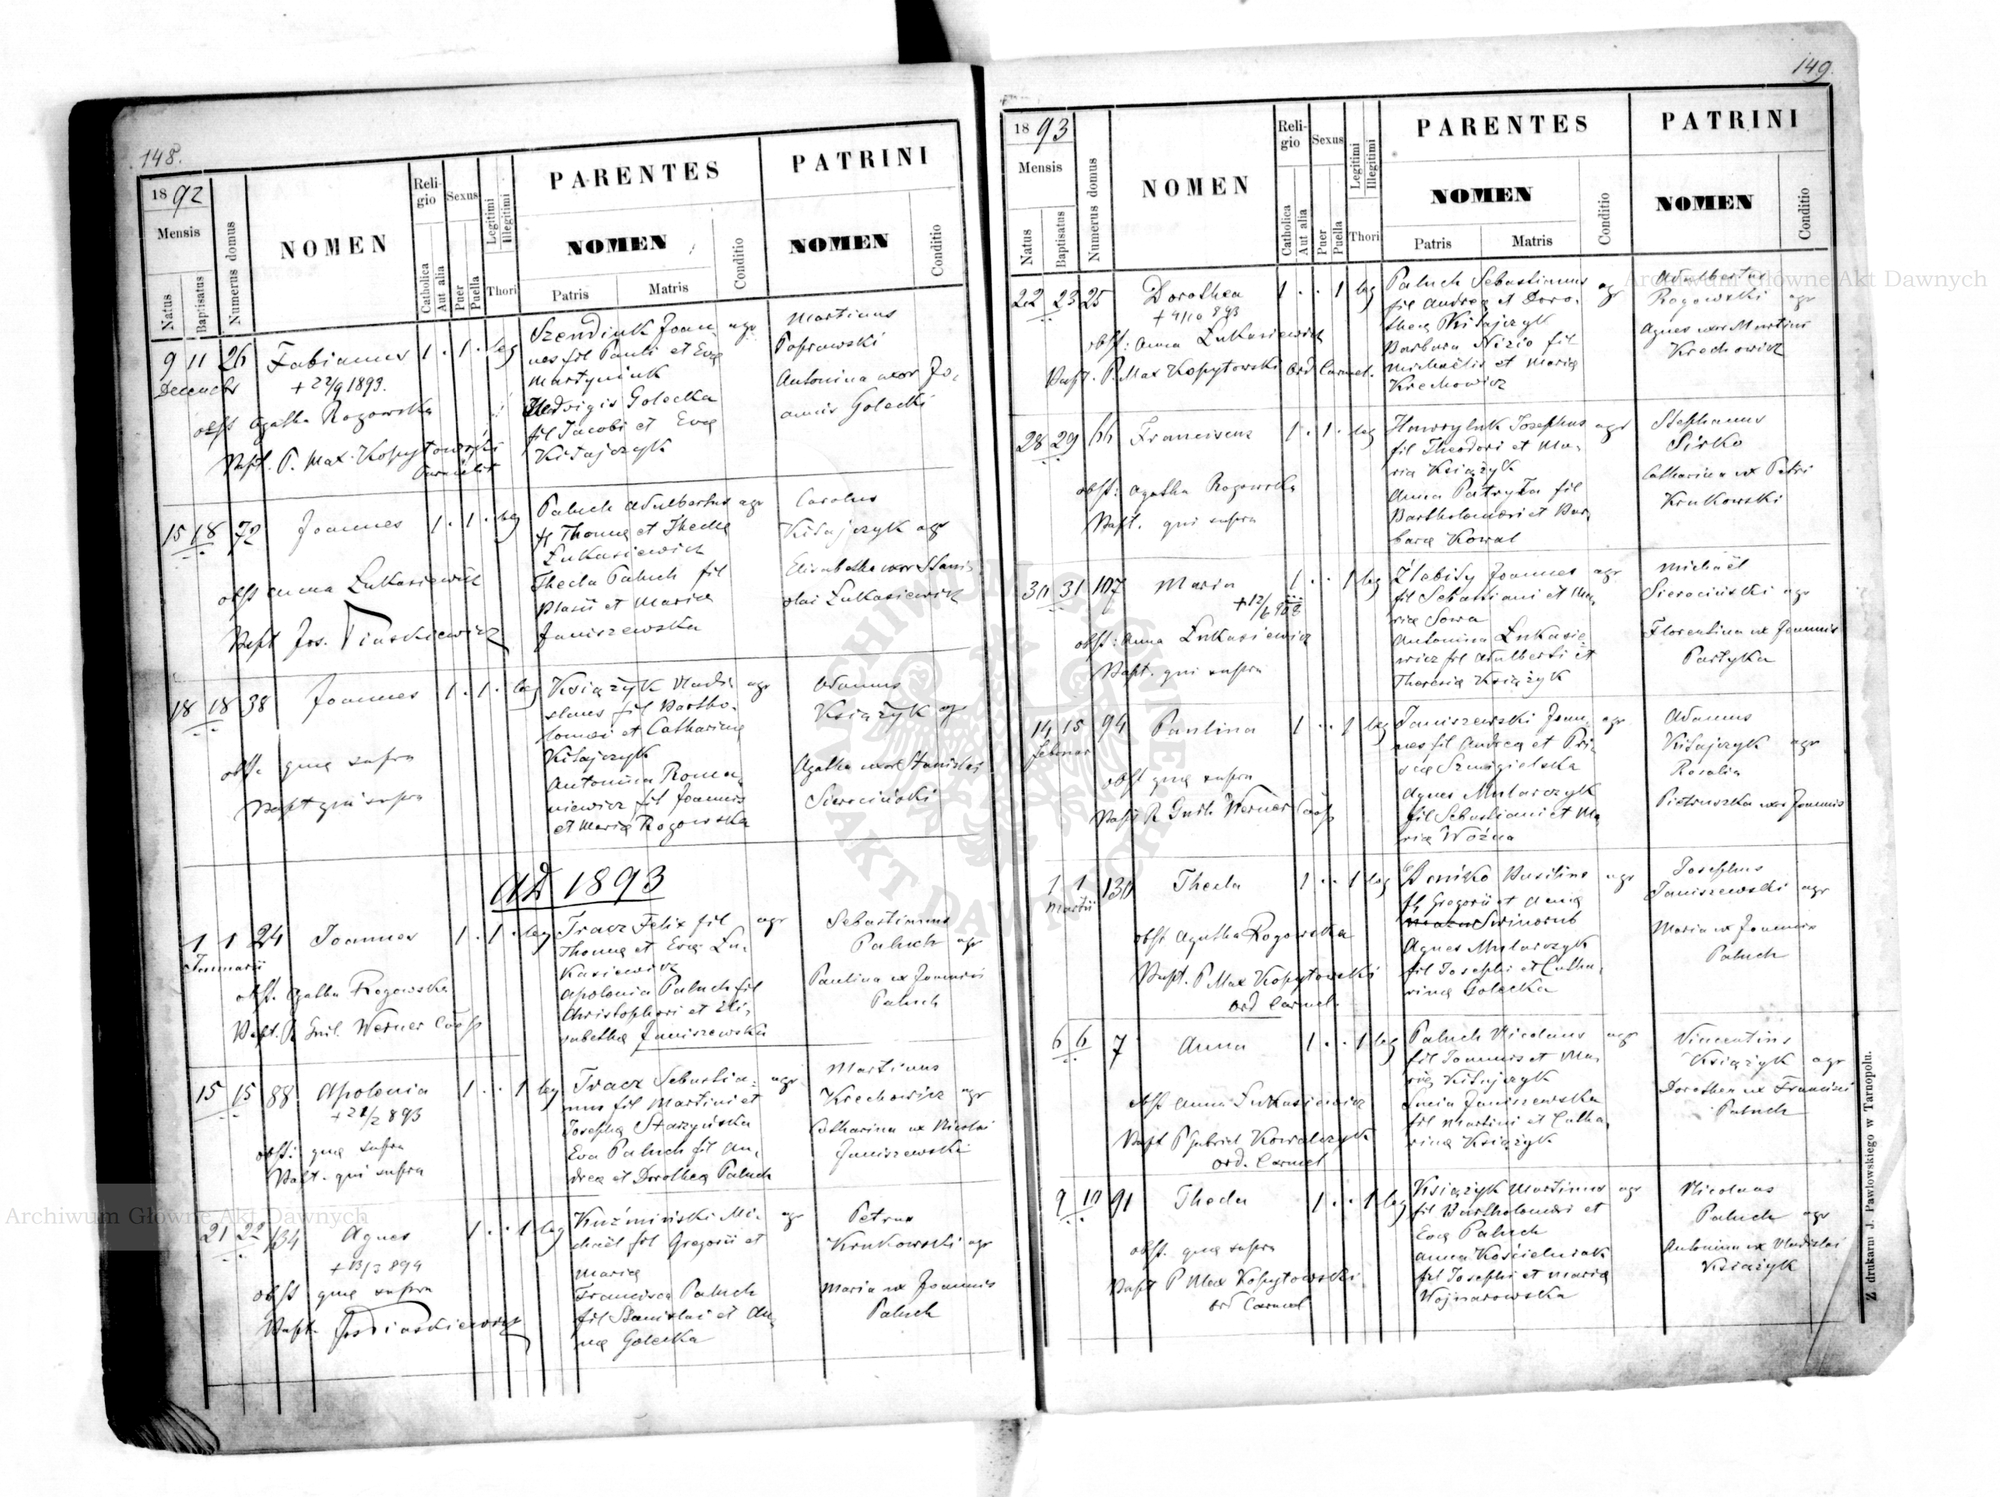 148.
1892
Mensis
Natus
Baptisatus
Numerus domus
NOMEN
Religio
Catholica
Aut alia
Sexus
Puer
Puella
Legitimi
Illegitimi
Thori
PARENTES
NOMEN
Patris
Matris
Conditio
PATRINI
NOMEN
Conditio
9 11 26 Fabianus 1 . 1 . leg
+ 22/9 1893.
obst Agatha Rogowska
Bapt. P. Max. Kopytowski
Joan agr
nes fil Pauli et Eva
Martyniuk
Hedvigis Golecka
fil Jacobi et Eva
Kitajczyk
Martinus
Antonina uxor Jo-
annis Golecki
15 18 72 Joannes 1 . 1 . leg
obst Anna Łukasiewicz
Bapt Jos.
Paluch Adalbertus agr
fil Thoma et Thecla
Łukasiewicz
Thecla Paluch fil
Blasii et Maria
Janiszewska
Carolus
Kitajczyk agr
Elisabetha uxor Stanis
lai Łukasiewicz
18 18 38 Joannes 1 . 1 . leg
obst. quæ supra
Bapt qui supra
Książyk Vladi- agr
slaus fil Bartho-
lomæi et Catharina
Kitajczyk
Antonina Roma-
niewicz fil Joannis
et Maria Rogowska
Adamus
Książyk agr
Agatha uxor Stanislai
Sierociński
AD 1893
1 1 24 Joannes 1 . 1 . leg
Januarii
obst. Agatha Rogowska
Bapt. R Guil. Werner Coop
Tracz Felix fil agr
Thoma et Eva Łu-
kasiewicz
Apolonia Paluch fil
Christophori et Eli-
sabetha Janiszewska
Sebastianus
Paluch agr
Paulina ux Joannis
Paluch
15 15 88 Apolonia 1 . . 1 leg
obst: quæ supra
Bapt. qui supra
Tracz Sebastia- agr
nus fil Martini et
Josepha Starzyńska
Eva Paluch fil An-
drea et Dorothea Paluch
Martinus
Krechowicz agr
Catharina ux Nicolai
Janiszewski
21 22 134 Agnes 1 . . 1 leg
+ 13/3 894
obst quæ supra
Bapt.
Kuźmiński Mi- agr
chael fil Gregorii et
Maria
Francisca Paluch
fil Stanislai et An-
na Golecka
Petrus
Krukowski agr
Maria ux Joannis
Paluch
149.
1893
Mensis
Natus
Baptisatus
Numerus domus
NOMEN
Religio
Catholica
Aut alia
Sexus
Puer
Puella
Legitimi
Illegitimi
Thori
PARENTES
NOMEN
Patris
Matris
Conditio
PATRINI
NOMEN
Conditio
22 23 25 Dorothea 1 . . 1 leg
+ 4/10 893
obst: Anna Łukasiewicz
Bapt. P. Max Kopytowski Ord Carmel.
Paluch Sebastianus agr
fil Andrea et Doro-
thea Kitajczyk
Barbara Nizio fil
Michaelis et Maria
Krechowicz
Adalbertus
Rogowski agr
Agnes uxor Martini
Krechowicz
28 29 66 Franciscus 1 . 1 . leg
obst: Agatha Rogowska
Bapt. qui supra
Hawryluk Josephus agr
fil Theodori et Ma-
ria Książyk
Anna Patryła fil
Bartholomæi et Bar-
bara Kowal
Stephanus
Sirko
Catharina ux Petri
Krukowski
30 31 107 Maria 1 . . 1 leg
obst: Anna Łukasiewicz
Bapt. qui supra
Joannes agr
fil Sebastiani et Ma-
ria Sowa
Antonina Łukasie-
wicz fil Adalberti et
Theresia Książyk
Michaël
Sierociński agr
Florentina ux Joannis
Partyka
14 15 94 Paulina 1 . . 1 leg
Februar
obst quæ supra
Bapt R Guil. Werner Coop
Janiszewski Joan- agr
nes fil Andrea et Pri-
sca Szmigielska
Agnes Mularczyk
fil Sebastiani et Ma-
ria Woźna
Adamus
Kitajczyk agr
Rosalia
Pietruszka uxor Joannis
1 1 130 Thecla 1 . . 1 leg
Martii
obst Agatha Rogowska
Bapt. P Max Kopytowski
Ord Carmel.
Basilius agr
fil Gregorii et
Agnes Mularczyk
fil Josephi et Catha-
rina Golecka
Josephus
Janiszewski agr
Maria ux Joannis
Paluch
6 6 7 Anna 1 . . 1 leg
obst Anna Łukasiewicz
Bapt P Gabriel Kowalczyk
Ord. Carmel
Paluch Nicolaus agr
fil Joannis et Ma-
ria Kitajczyk
Lucia Janiszewska
fil Martini et Catha-
rina Książyk
Vincentius
Książyk agr
Dorothea ux Francisci
Paluch
9 10 91 Thecla 1 . . 1 leg
obst. quæ supra
Bapt P Max Kopytowski
Ord Carmel
Książyk Martinus agr
fil Bartholomæi et
Eva Paluch
Anna Kościelniak
fil Josephi et Maria
Wojnarowska
Nicolaus
Paluch agr
Antonina ux Vladislai
Książyk
Z drukarni J. Pawłowskiego w Tarnopolu.
Archiwum Główne Akt Dawnych
Archiwum Główne Akt Dawnych
ARCHIWUM GŁÓWNE AKT DAWNYCH